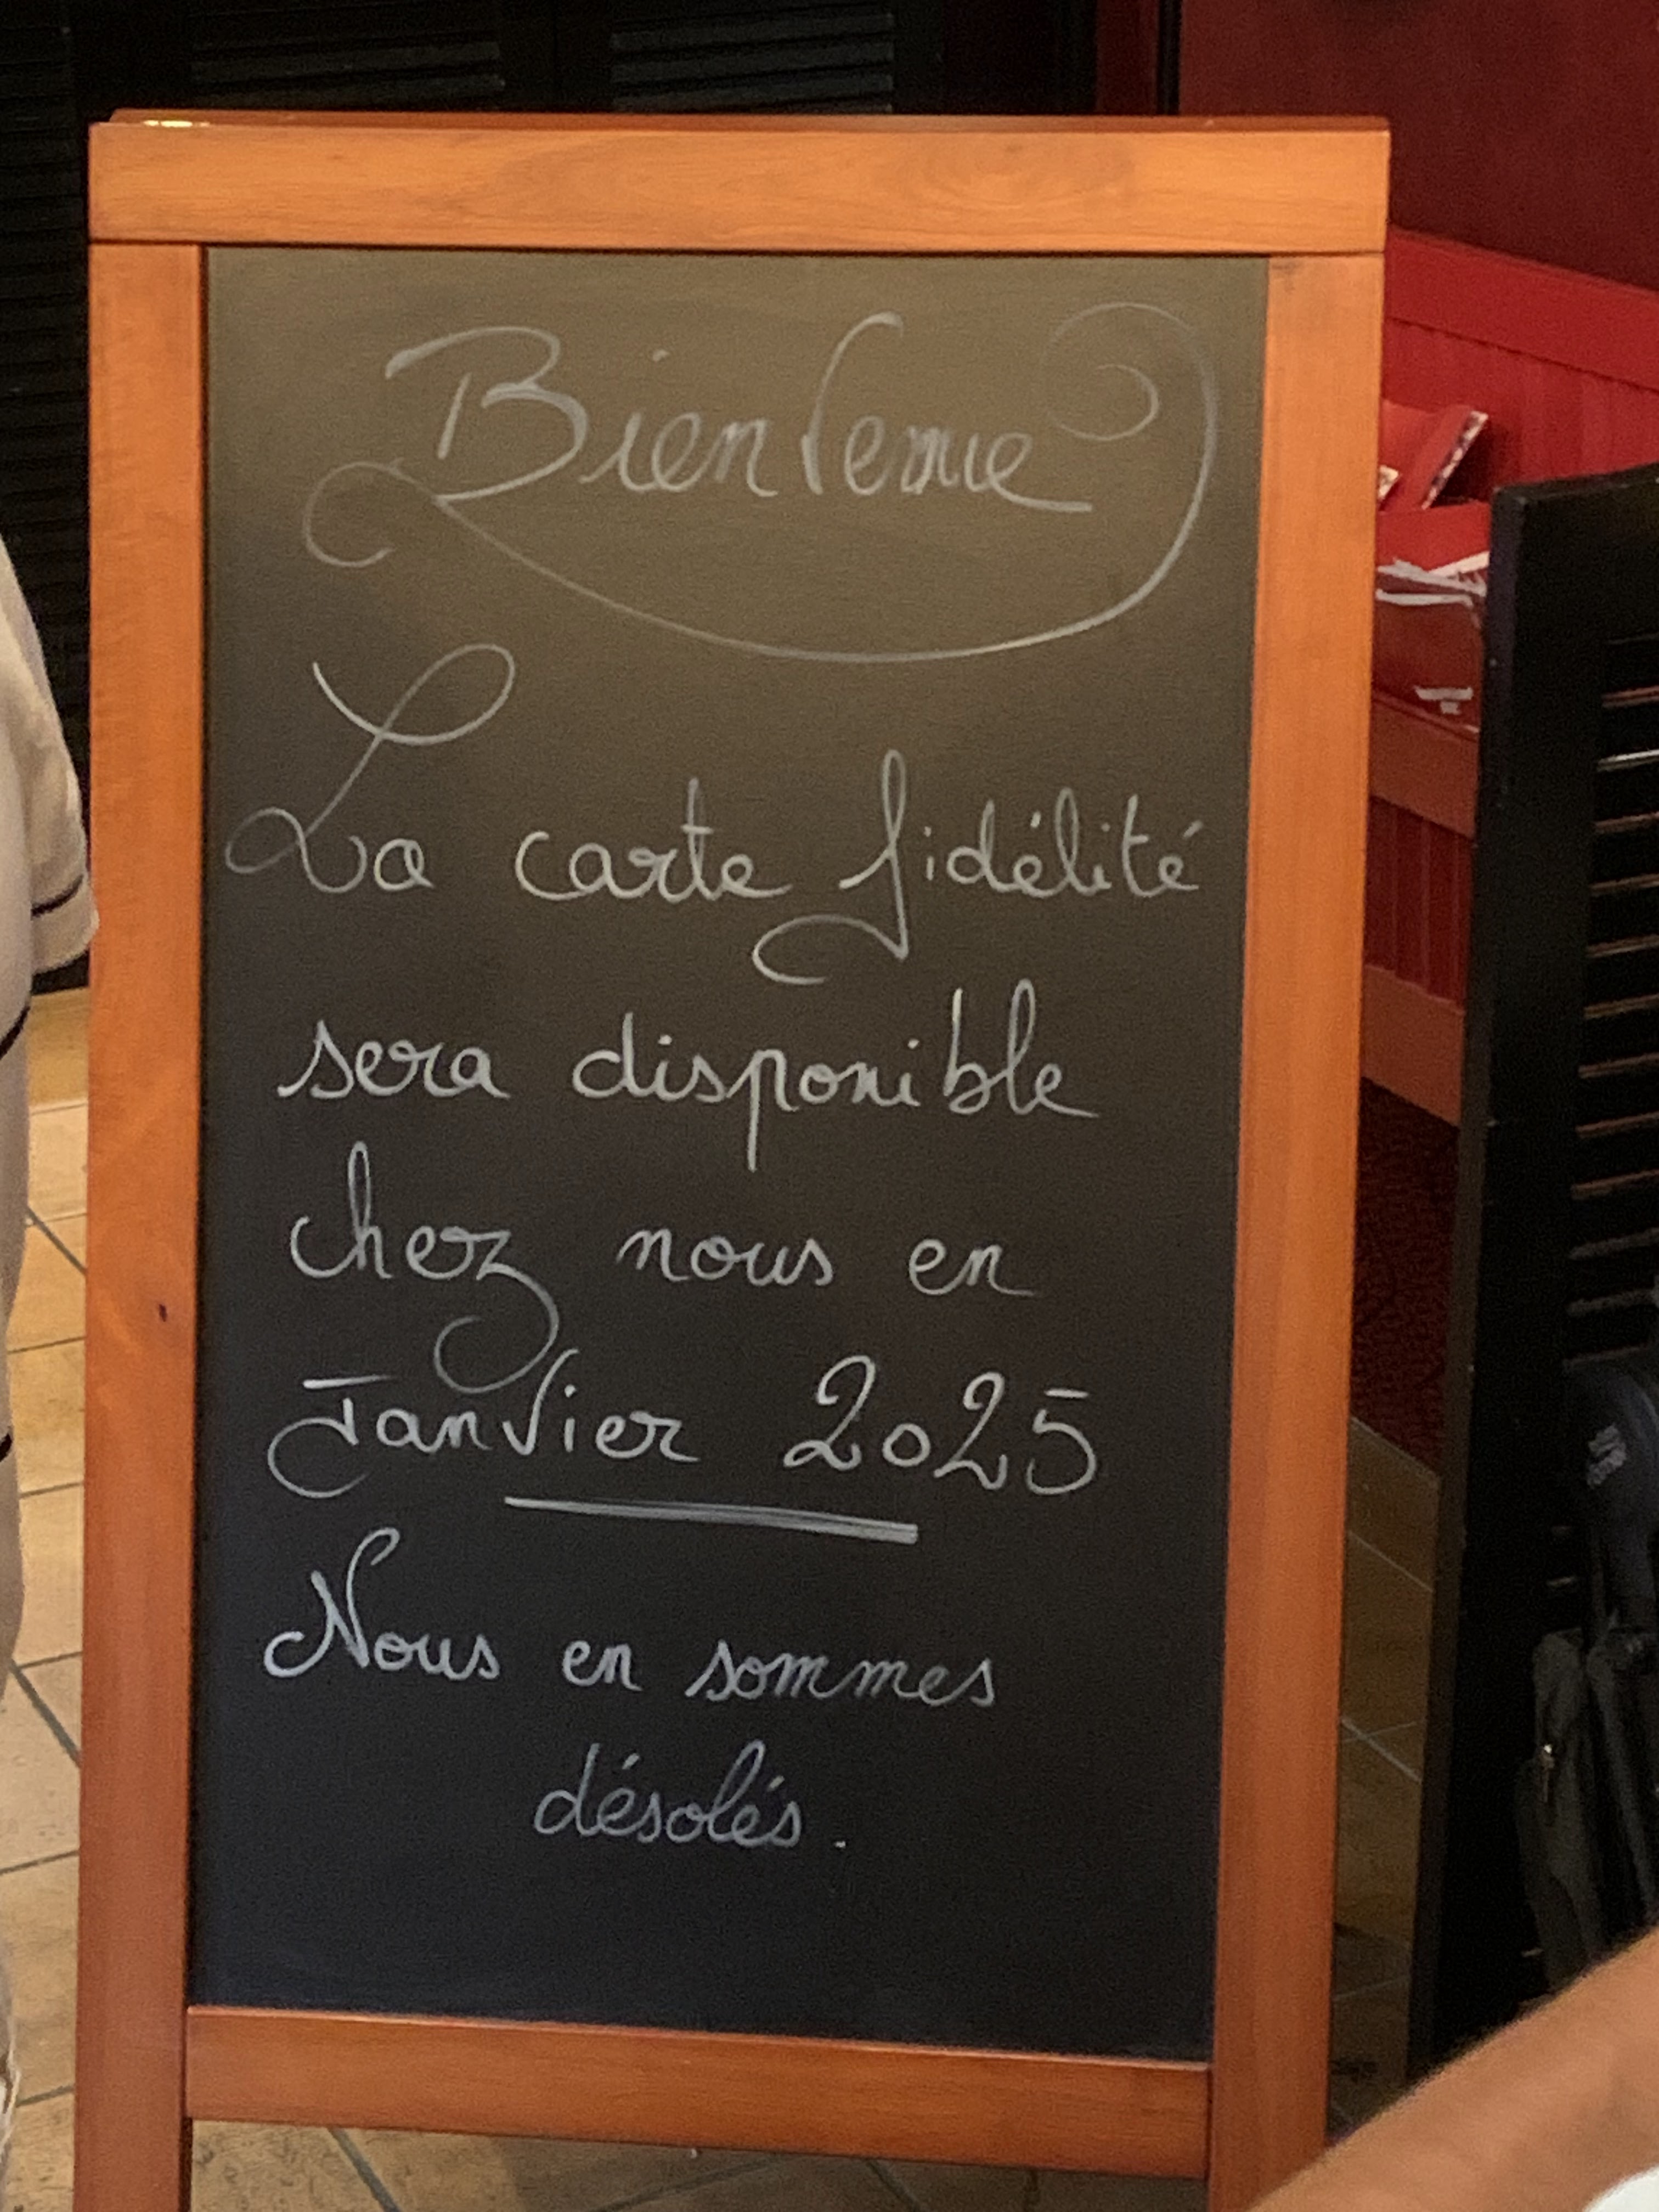 BienVenue
La carte fidélité
sera disponible
chez nous en
Janvier 2025
Nous en sommes
désolés.